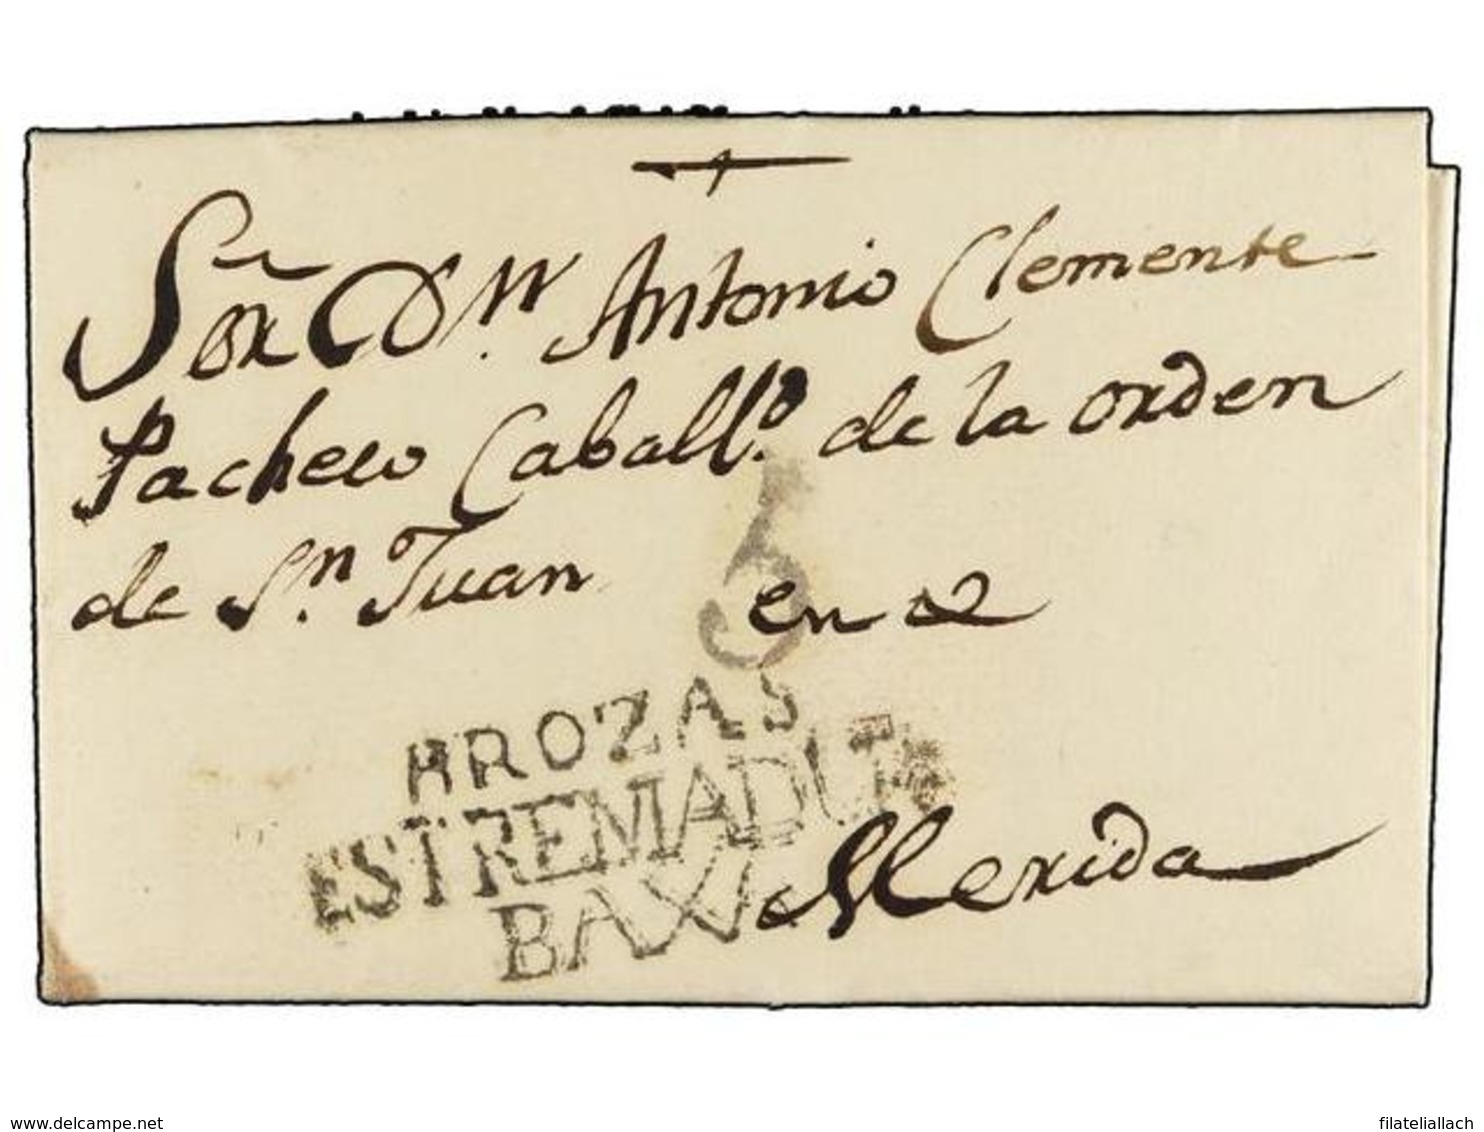 Sor Dn. Antonio Clemente
Pacheco Caballo. de la orden
de Sn. Juan en
5
BROZAS
ESTREMADURA
BAXA
Merida
delcampe.net
filateliallach